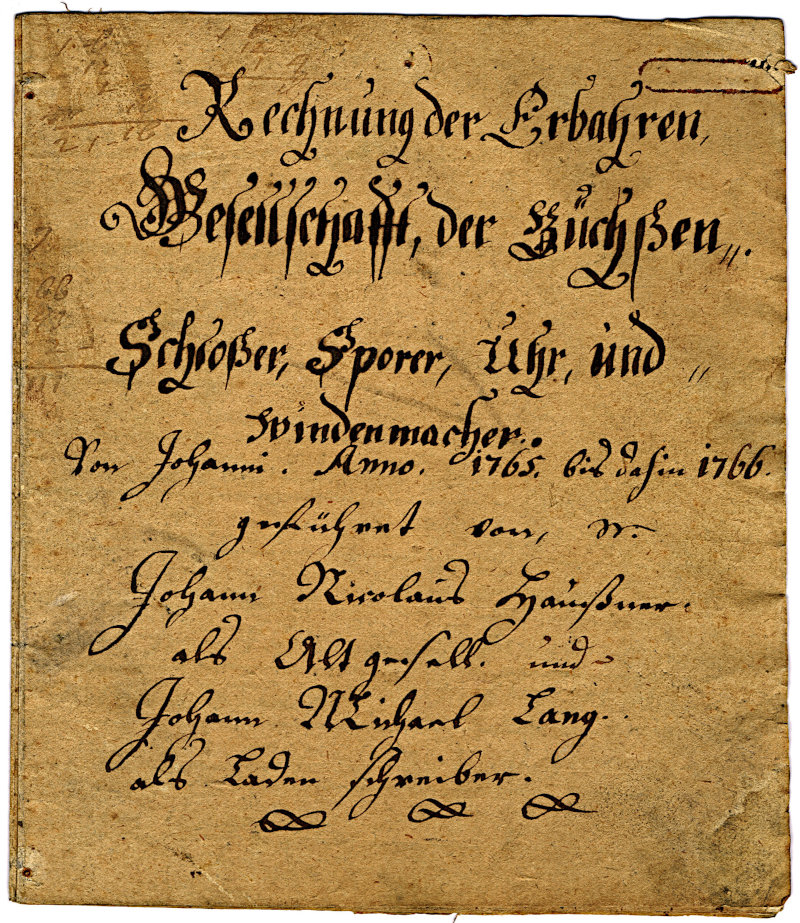 Rechnung der Erbahren,
Gesellschafft, der Büchßen„.
Schloßer, Sporer, Uhr, und „
windenmacher.
Von Johanni. Anno. 1765. bis dahin 1766.
geführet von,
Johann Nicolaus Häußner.
als Altgesell. und
Johann Michael Lang.
als Laden schreiber.